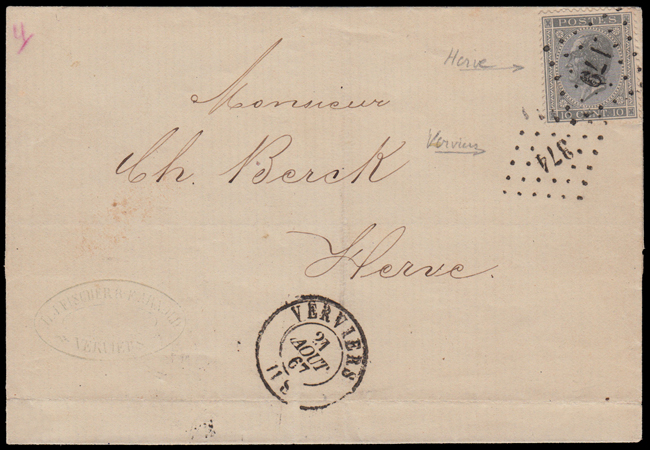 4
POSTES
179
10 CENT. 10
Herve
Verviers
374
Monsieur
Ch. Berck
Herve.
VERVIERS
VERVIERS
24
AOUT
67
11 S